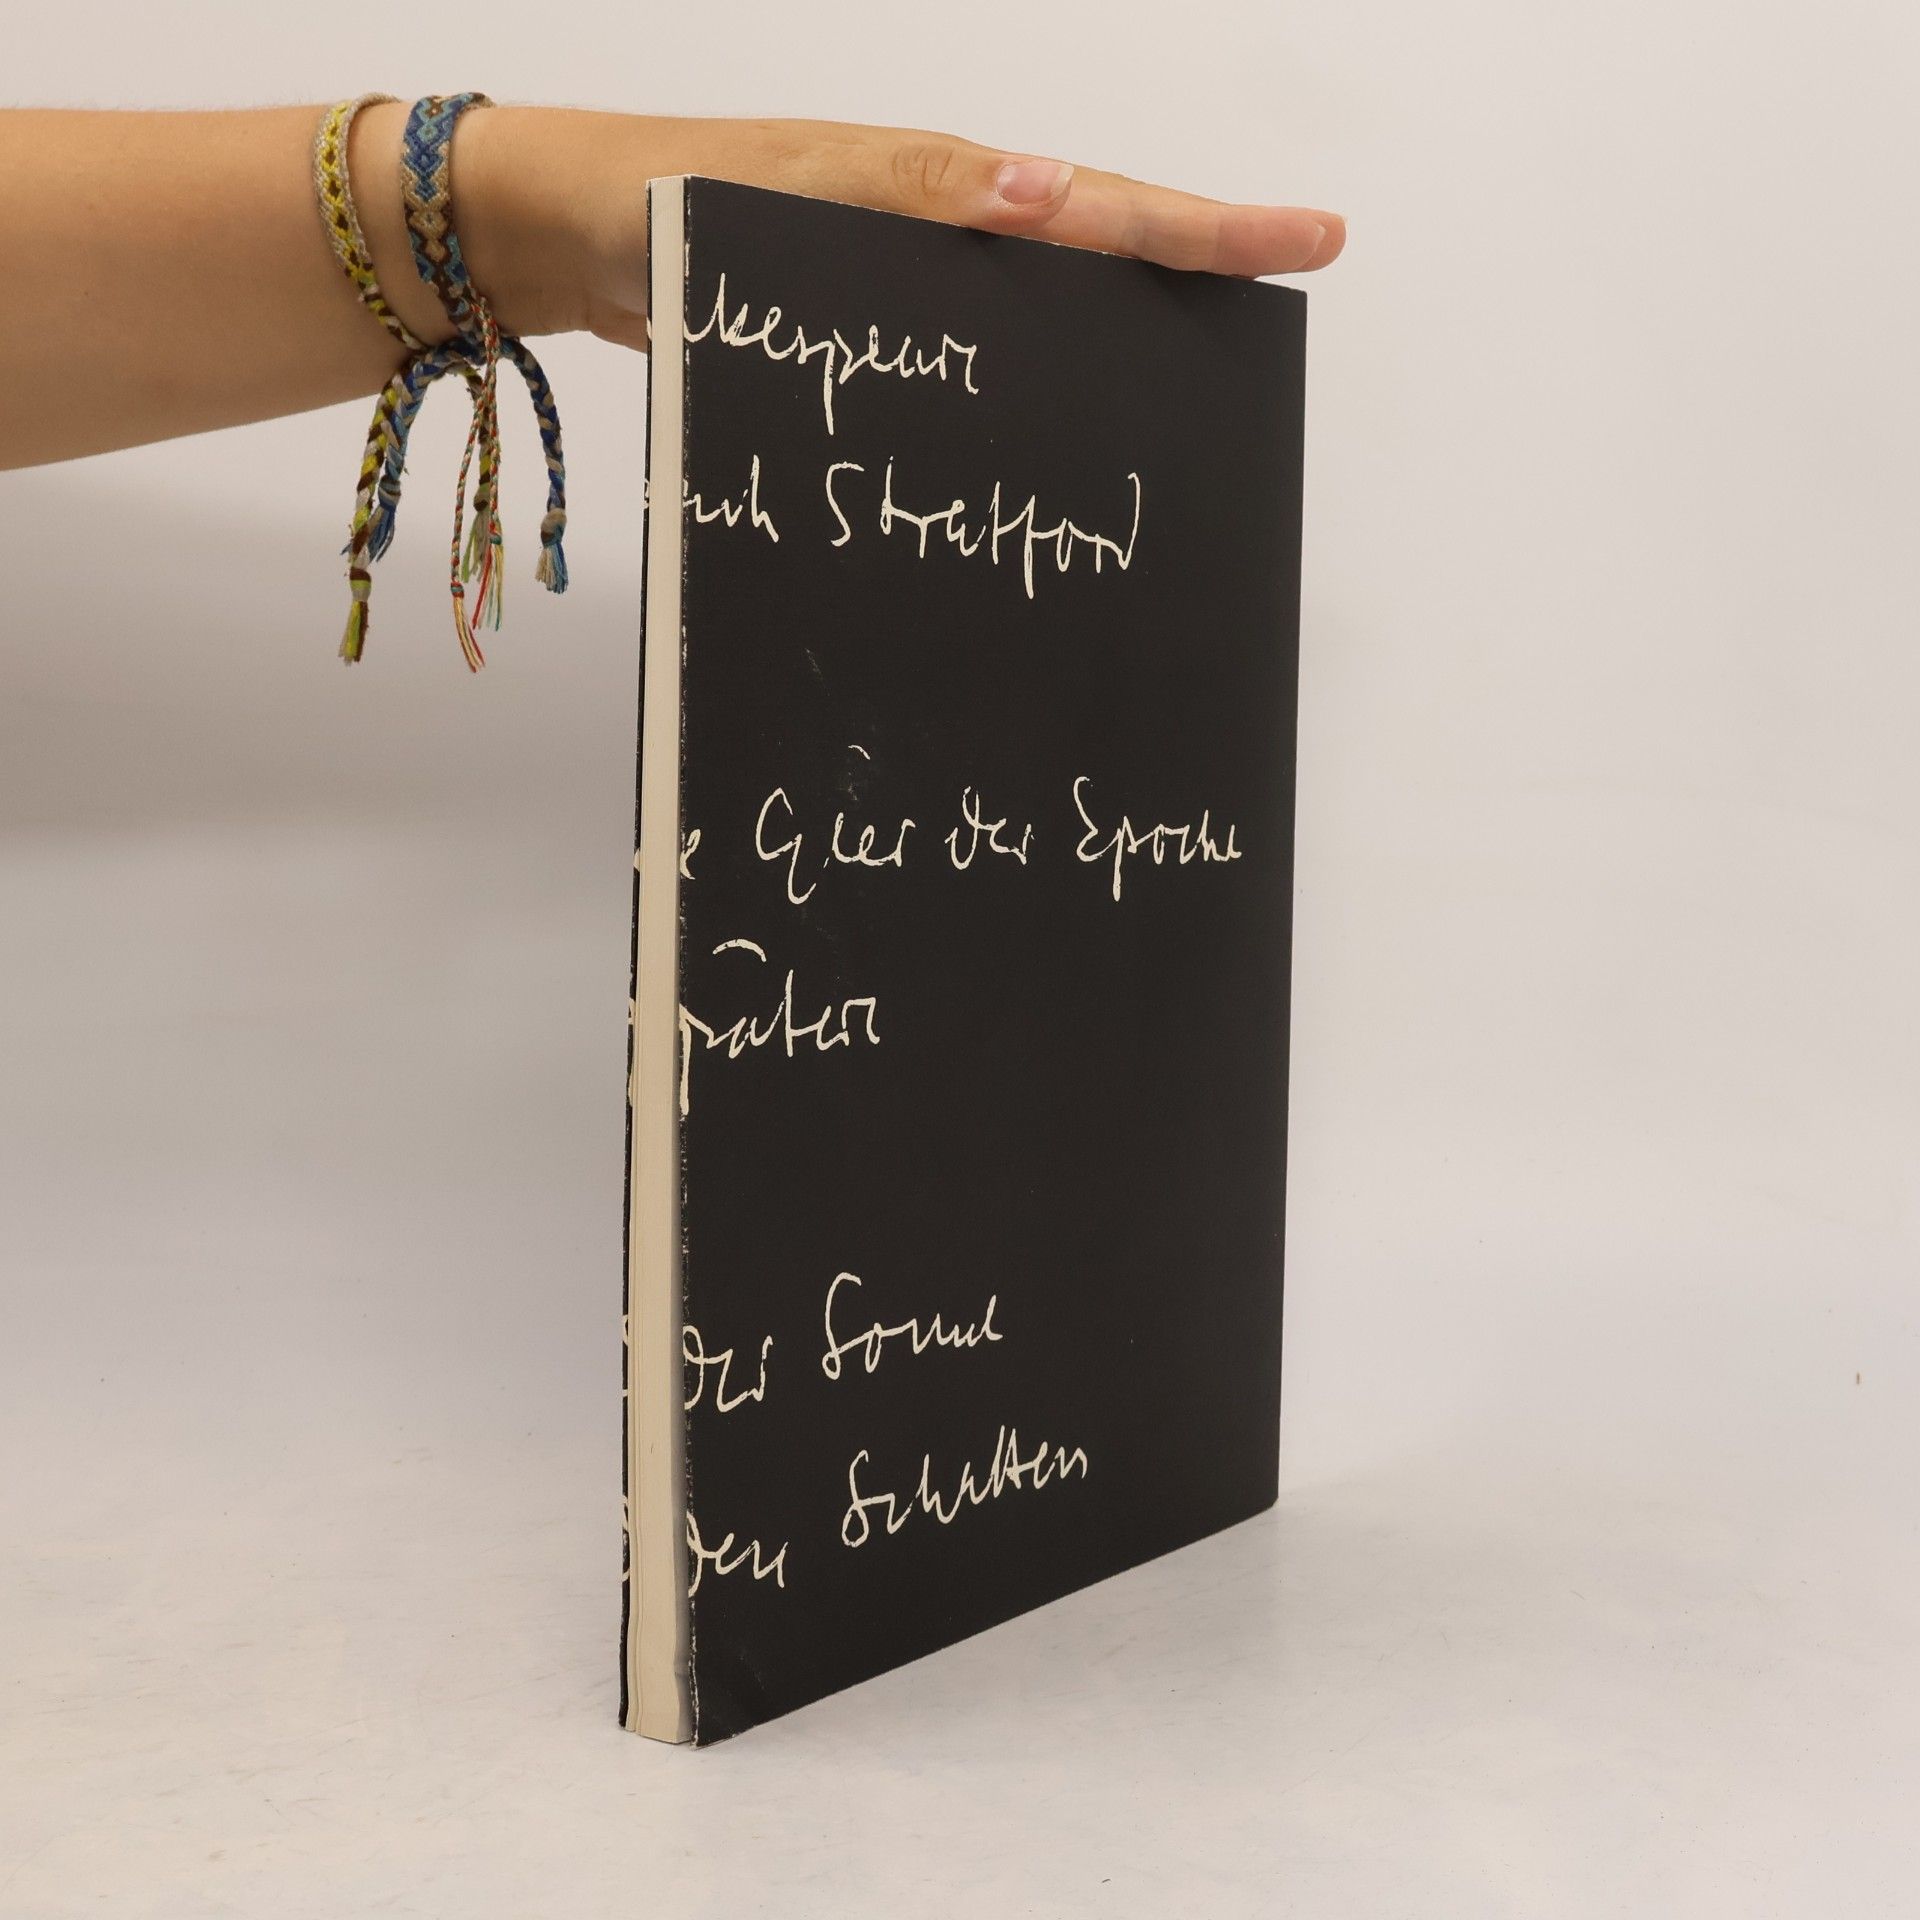 kespeare
uch Stratford
e Gier der Epoche
päter
der Sonne
den Schatten